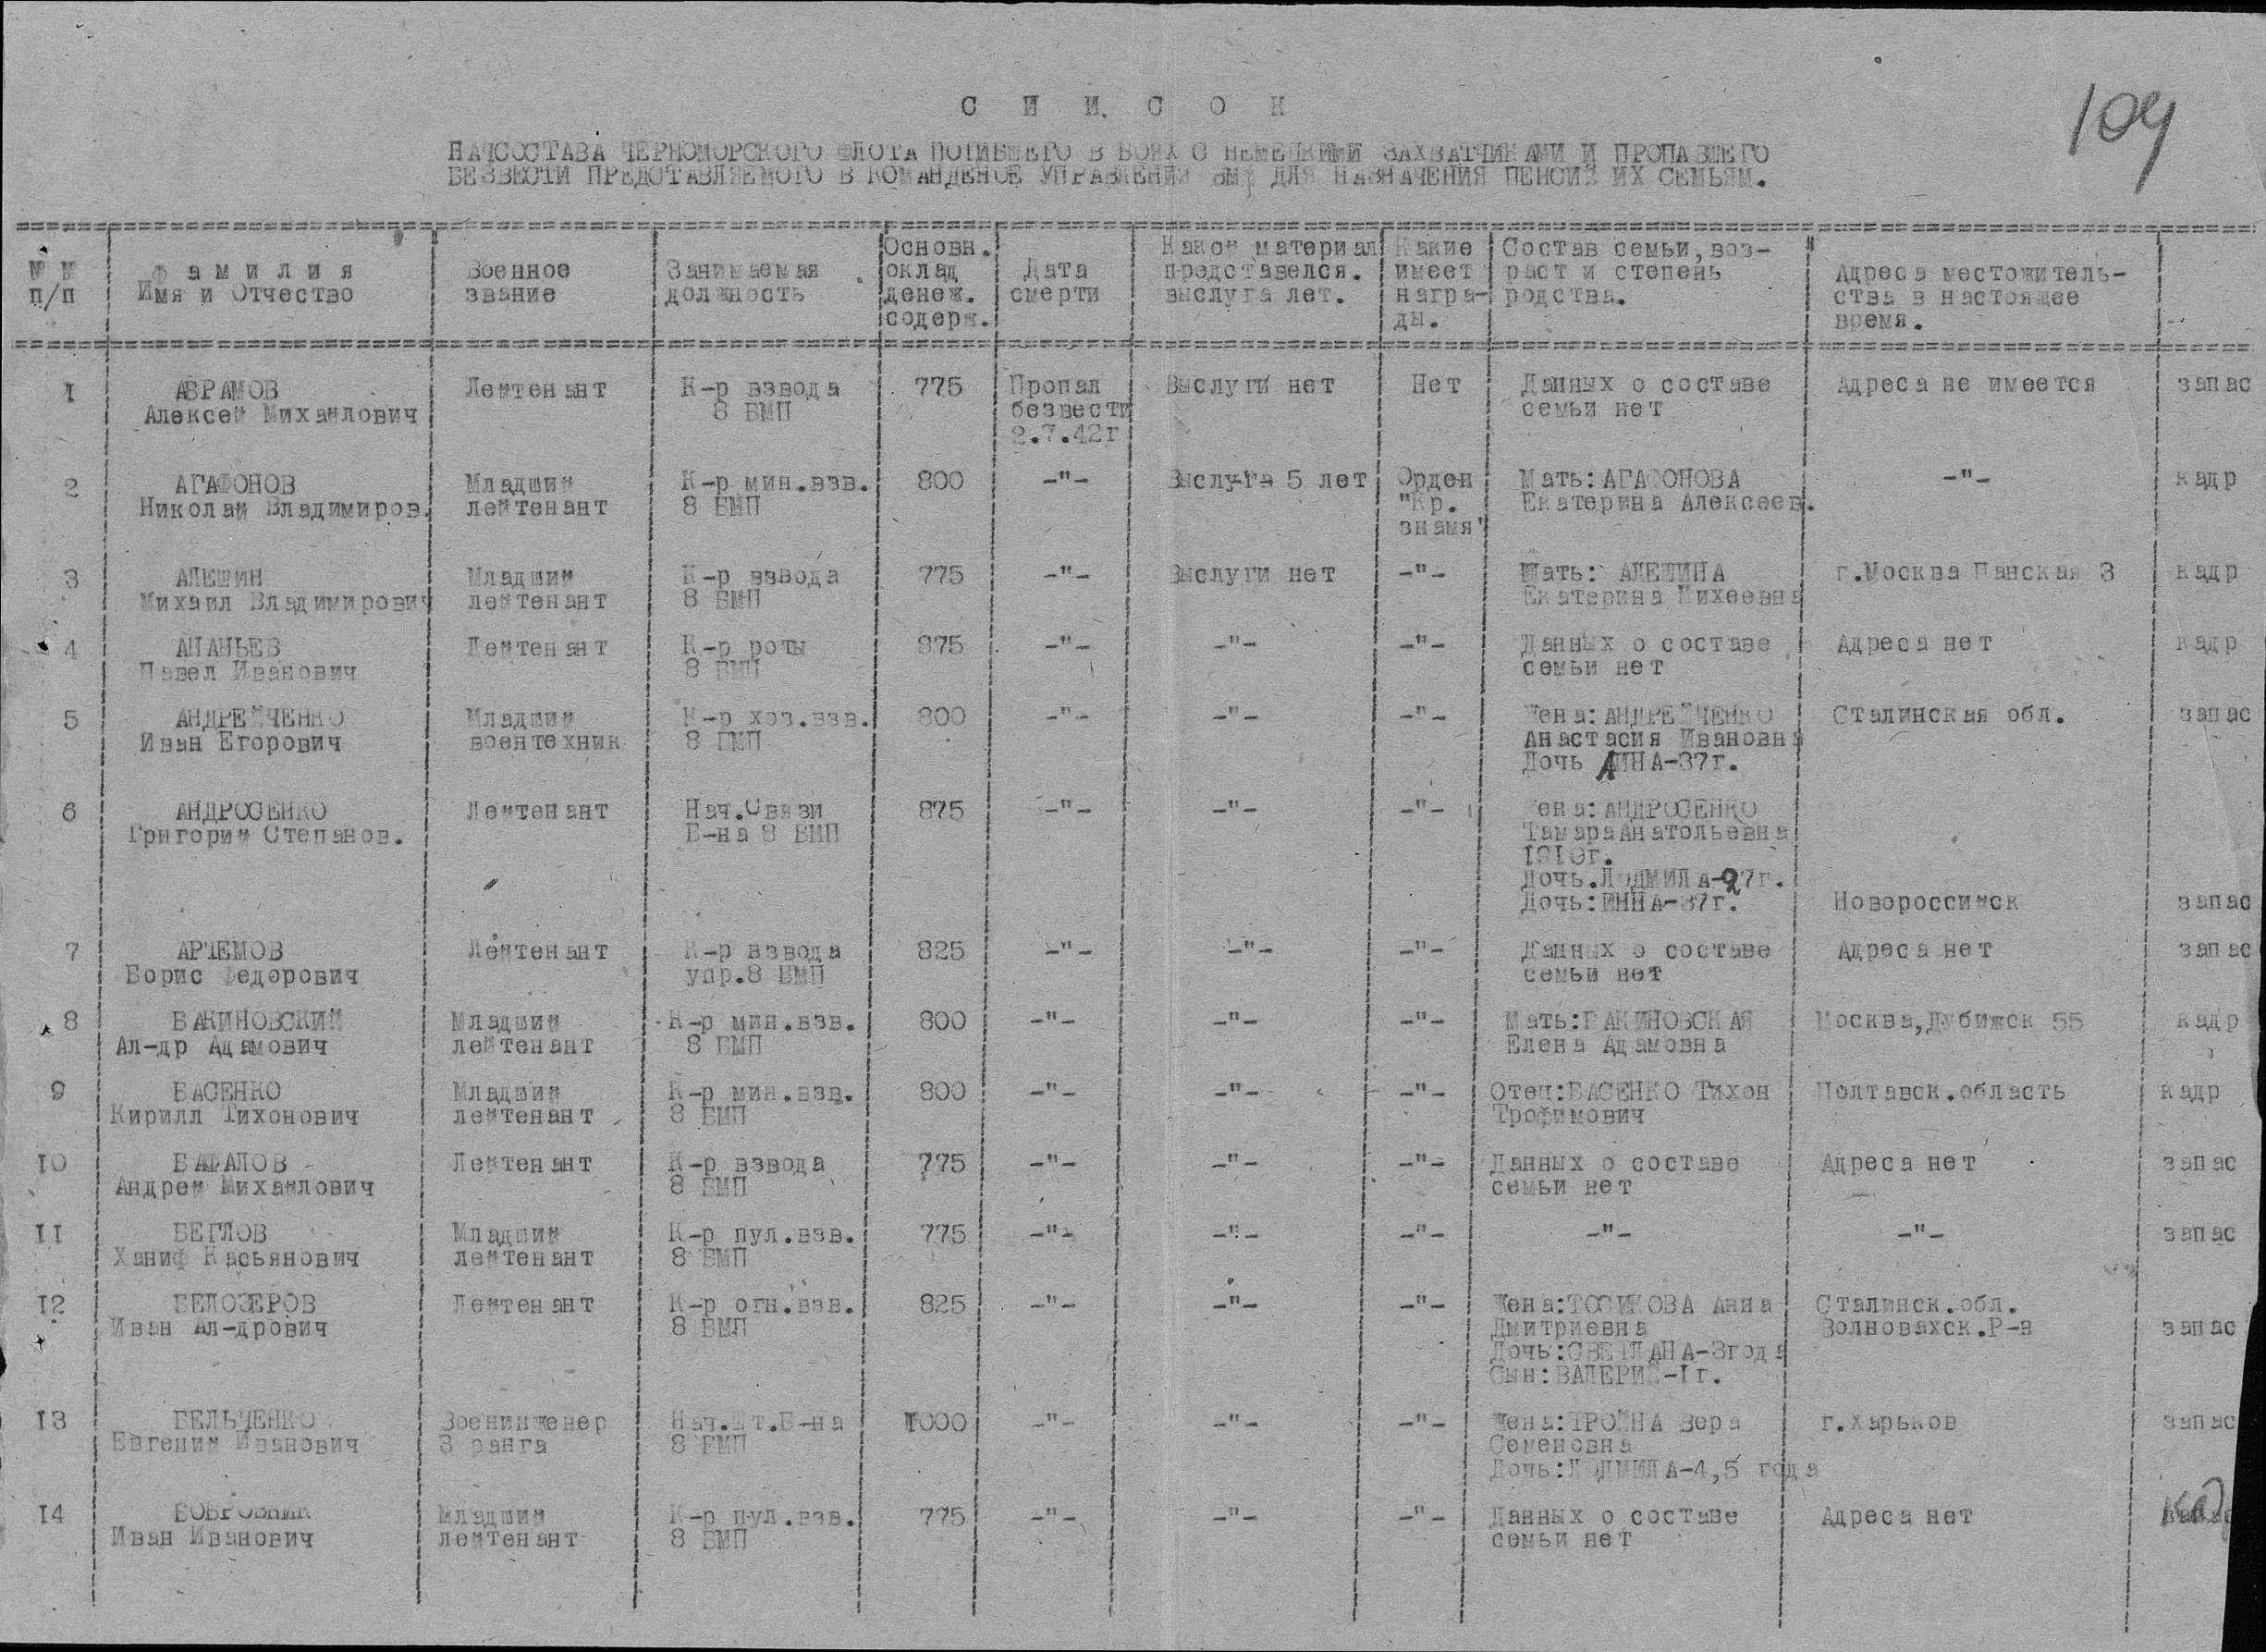 109
С П И С О К
НАЧСОСТАВА ЧЕРНОМОРСКОГО ФЛОТА ПОГИБШЕГО В БОЯХ С НЕМЕЦКИМИ ЗАХВАТЧИКАМИ И ПРОПАВШЕГО
БЕЗВЕСТИ ПРЕДСТАВЛЯЕМОГО В КОМАНДНОЕ УПРАВЛЕНИИ ВМФ ДЛЯ НАЗНАЧЕНИЯ ПЕНСИЙ ИХ СЕМЬЯМ.
№№ п/п
Ф а м и л и я
Имя и Отчество
Военное
звание
Занимаемая
должность
Основн.
оклад
денеж.
содерж.
Дата
смерти
Каков материал
представелся.
выслуга лет.
Какие
имеет
награ-
ды.
Состав семьи, воз-
раст и степень
родства.
Адреса местожитель-
ства в настоящее
время.
I АВРАМОВ Лейтенант К-р взвода 775 Пропал Выслуги нет Нет Данных о составе Адреса не имеется запас
Алексей Михайлович 8 БМП безвести семьи нет
2.7.42г
2 АГАФОНОВ Младший К-р мин.взв. 800 -"- Выслуга 5 лет Орден Мать: АГАФОНОВА -"- кадр
Николай Владимиров. лейтенант 8 БМП "Кр. Екатерина Алексеев.
знамя"
3 АЛЕШИН Младший К-р взвода 775 -"- Выслуги нет -"- Мать: АЛЕШИНА г.Москва Панская 3 кадр
Михаил Владимирович лейтенант 8 БМП Екатерина Михеевна
4 АНАНЬЕВ Лейтенант К-р роты 875 -"- -"- -"- Данных о составе Адреса нет кадр
Павел Иванович 8 БМП семьи нет
5 АНДРЕЙЧЕНКО Младший К-р хоз.взв. 800 -"- -"- -"- Жена: АНДРЕЙЧЕНКО Сталинская обл. запас
Иван Егорович воентехник 8 БМП Анастасия Ивановна
Дочь -37г.
6 АНДРОСЕНКО Лейтенант Нач.Связи 875 -"- -"- -"- Жена: АНДРОСЕНКО
Григорий Степанов. Б-на 8 БМП Тамара Анатольевна
1910г.
Дочь.ЛЮДМИЛА-27г.
Дочь: ИННА-37г. Новороссийск запас
7 АРТЕМОВ Лейтенант К-р взвода 825 -"- -"- -"- Данных о составе Адреса нет запас
Борис Федорович упр.8 БМП семьи нет
8 БАКИНОВСКИЙ Младший К-р мин.взв. 800 -"- -"- -"- Мать: БАКИНОВСКАЯ Москва, Дубижск 55 кадр
Ал-др Адамович лейтенант 8 БМП Елена Адамовна
9 БАСЕНКО Младший К-р мин.взв. 800 -"- -"- -"- Отец: БАСЕНКО Тихон Полтавск.область кадр
Кирилл Тихонович лейтенант 8 БМП Трофимович
I0 БАФАЛОВ Лейтенант К-р взвода 775 -"- -"- -"- Данных о составе Адреса нет запас
Андрей Михайлович 8 БМП семьи нет
II БЕГЛОВ Младший К-р пул.взв. 775 -"- -"- -"- -"- -"- запас
Ханиф Касьянович лейтенант 8 БМП
I2 БЕЛОЗЕРОВ Лейтенант К-р огн.взв. 825 -"- -"- -"- Жена: Анна Сталинск.обл.
Иван Ал-дрович 8 БМП Дмитриевна Волновахск.Р-в запас
Дочь: СВЕТЛАНА-3года
Сын: ВАЛЕРИЙ-Iг.
I3 БЕЛЬЧЕНКО Военинженер Нач.Шт.Б-на I000 -"- -"- -"- Жена: Вера г.Харьков запас
Евгений Иванович 3 ранга 8 БМП Семеновна
Дочь: ЛЮДМИЛА-4,5 года
I4 БОБРОВНИК Младший К-р пул.взв. 775 -"- -"- -"- Данных о составе Адреса нет
Иван Иванович лейтенант 8 БМП семьи нет